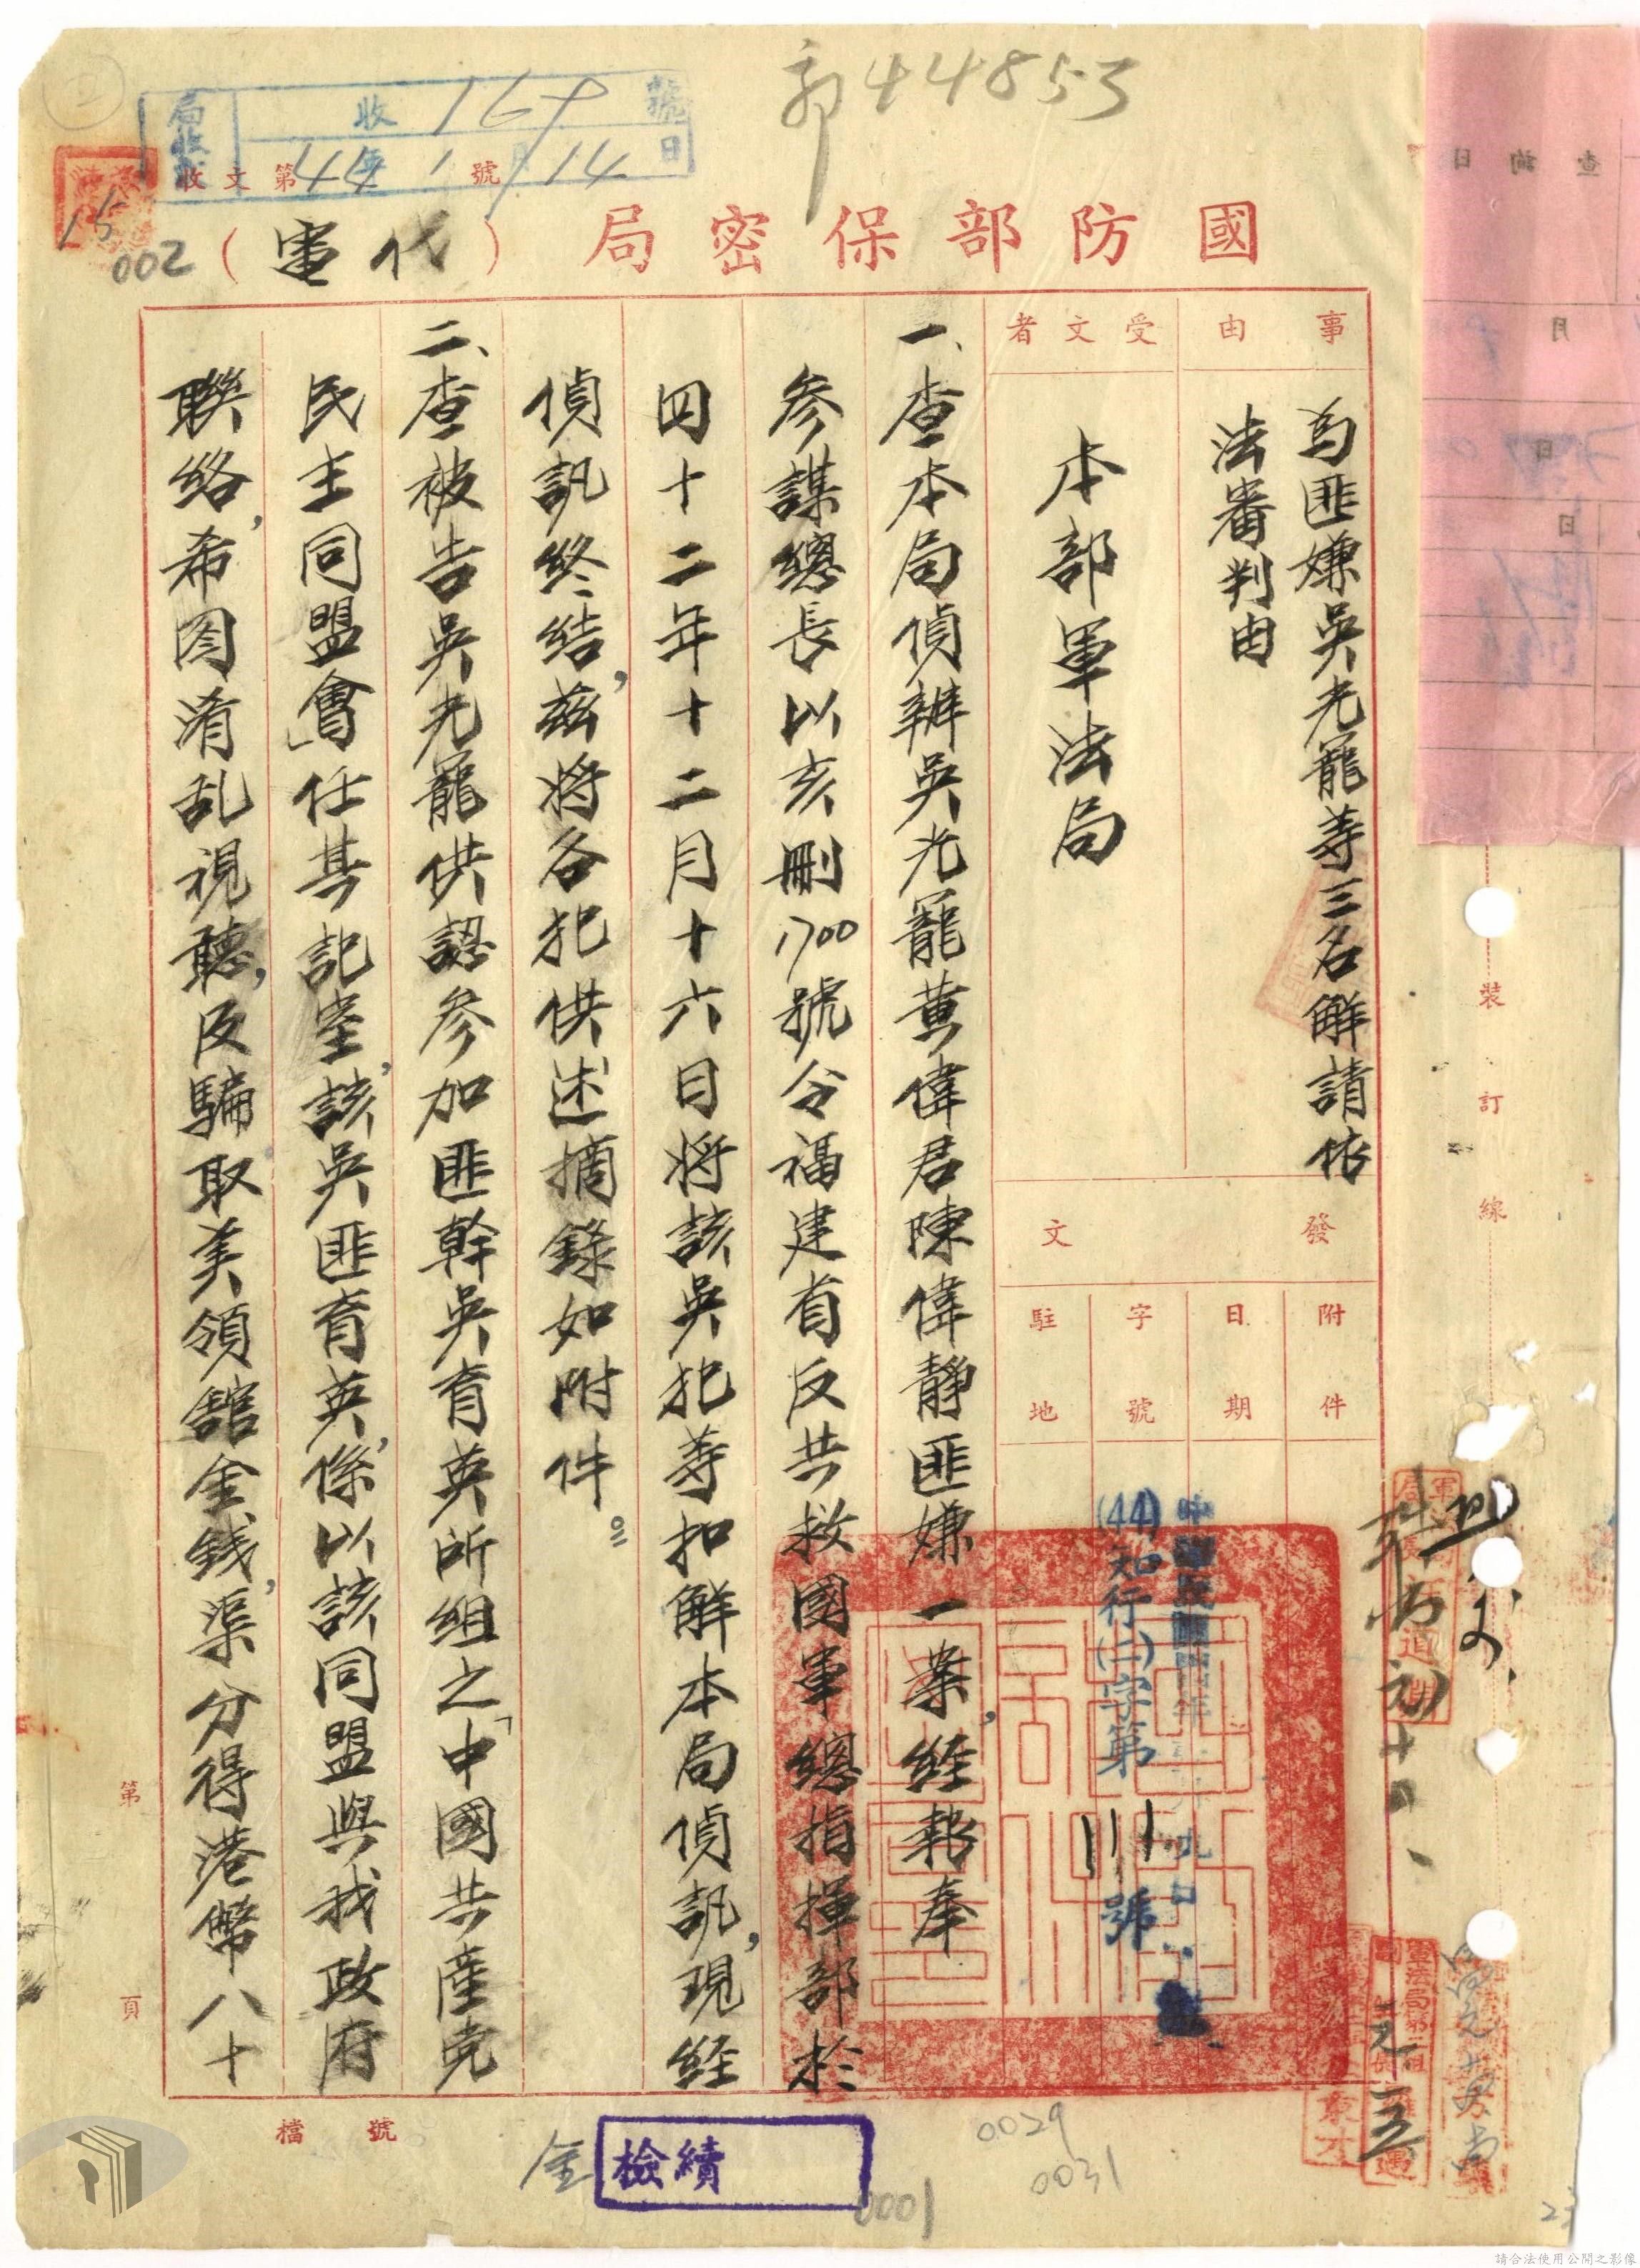 郭44853
局收文
收 169 號
44年1月14日
收文第 號
15
002
國防部保密局（代電）
查詢日
月
日
日
事由
為匪嫌吳光籠等三名解請依
法審判由
受文者
本部軍法局
發文
附件
日期
字號
駐地
(44)知行(二)字第111號
裝訂線
一、查本局偵辦吳光籠黃偉君陳偉靜匪嫌一案,經報奉
參謀總長以亥刪1700號令福建省反共救國軍總指揮部於
四十二年十二月十六日將該吳犯等扣解本局偵訊,現經
偵訊終結,茲將各犯供述摘錄如附件。
二、查被告吳光籠供認參加匪幹吳育英所組之「中國共產党
民主同盟會」任其記室,該吳匪育英,係以該同盟與我政府
聯絡,希图淆乱視聽,反騙取美領舘金錢,渠分得港幣八十
第 頁
檔號
金
檢績
0029
0031
0001
請合法使用公開之影像